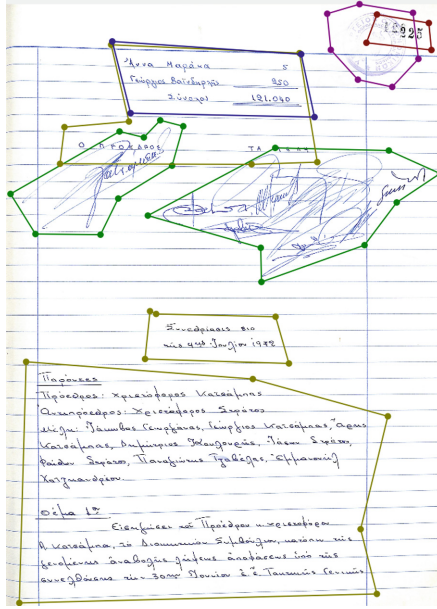 925
Άννα Μαράκα 5
Γεώργιος 250
Σύνολον 121.040
Ο ΠΡΟΕΔΡΟΣ ΤΑ ΜΕΛΗ
Συνεδρίασις
της Ιουλίου 1972
Παρόντες
Πρόεδρος: Χριστόφορος Κατσάμπας
Αντιπρόεδρος: Χριστόφορος Στράτος
Μέλη: Ιάκωβος Γεωργάνας, Γεώργιος Κατσάμπας, Άρης
Κατσάμπας, Δημήτριος Ιάσων Στράτος,
Φαίδων Στράτος, Παναγιώτης Τζαβέλας, Εμμανουήλ
Χατζηανδρέου.
Θέμα 1ον
Εισηγήσει του Προέδρου κ. Χριστοφόρου
Α. Κατσάμπα, το Διοικητικόν Συμβούλιον, κατόπιν της
γενομένης αναβολής λήψεως αποφάσεως υπό της
συνελθούσης την 30ην Ιουνίου ε.έ. Τακτικής Γενικής